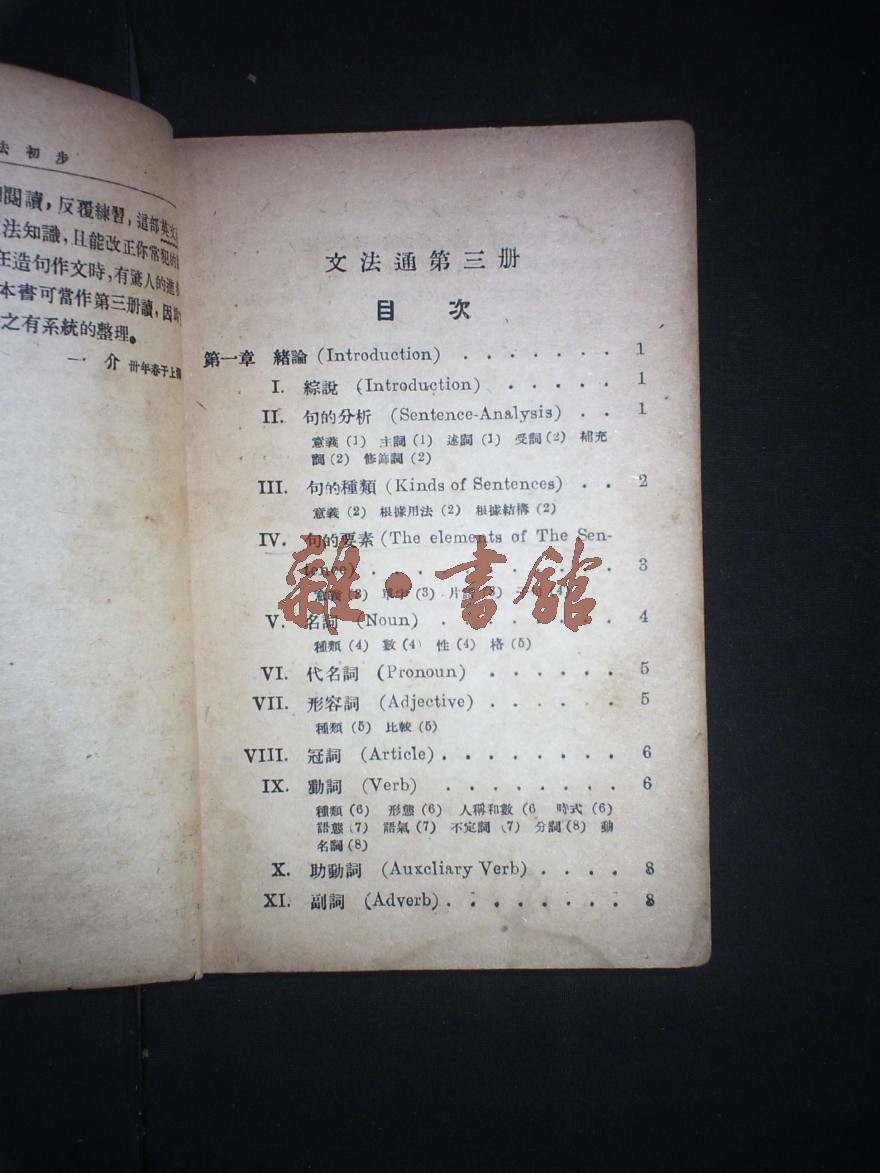 法初步
閱讀，反覆練習，這部英文
法知識，且能改正你常犯的
在造句作文時，有驚人的進
本書可當作第三册讀，因
之有系統的整理。
一介 卅年春于上
文法通第三册
目 次
第一章 緒論 (Introduction) . . . . . . . 1
I. 綜說 (Introduction) . . . . . 1
II. 句的分析 (Sentence-Analysis) . . 1
意義 (1) 主詞 (1) 述詞 (1) 受詞 (2) 補充
詞 (2) 修飾詞 (2)
III. 句的種類 (Kinds of Sentences) . . 2
意義 (2) 根據用法 (2) 根據結構 (2)
IV. 句的要素 (The elements of The Sen-
tence) . . . . . . . . 3
意義 (3) 單字 (3) 片語 (3) 子句 (4)
V. 名詞 (Noun) . . . . . . . 4
種類 (4) 數 (4 性 (4) 格 (5)
VI. 代名詞 (Pronoun) . . . . . . 5
VII. 形容詞 (Adjective) . . . . . . 5
種類 (5) 比較 (5)
VIII. 冠詞 (Article) . . . . . . . 6
IX. 動詞 (Verb) . . . . . . . 6
種類 (6) 形態 (6) 人稱和數 (6 時式 (6)
語態 (7) 語氣 (7) 不定詞 (7) 分詞 (8) 動
名詞 (8)
X. 助動詞 (Auxcliary Verb) . . . . 8
XI. 副詞 (Adverb) . . . . . . . . 8
雜·書館